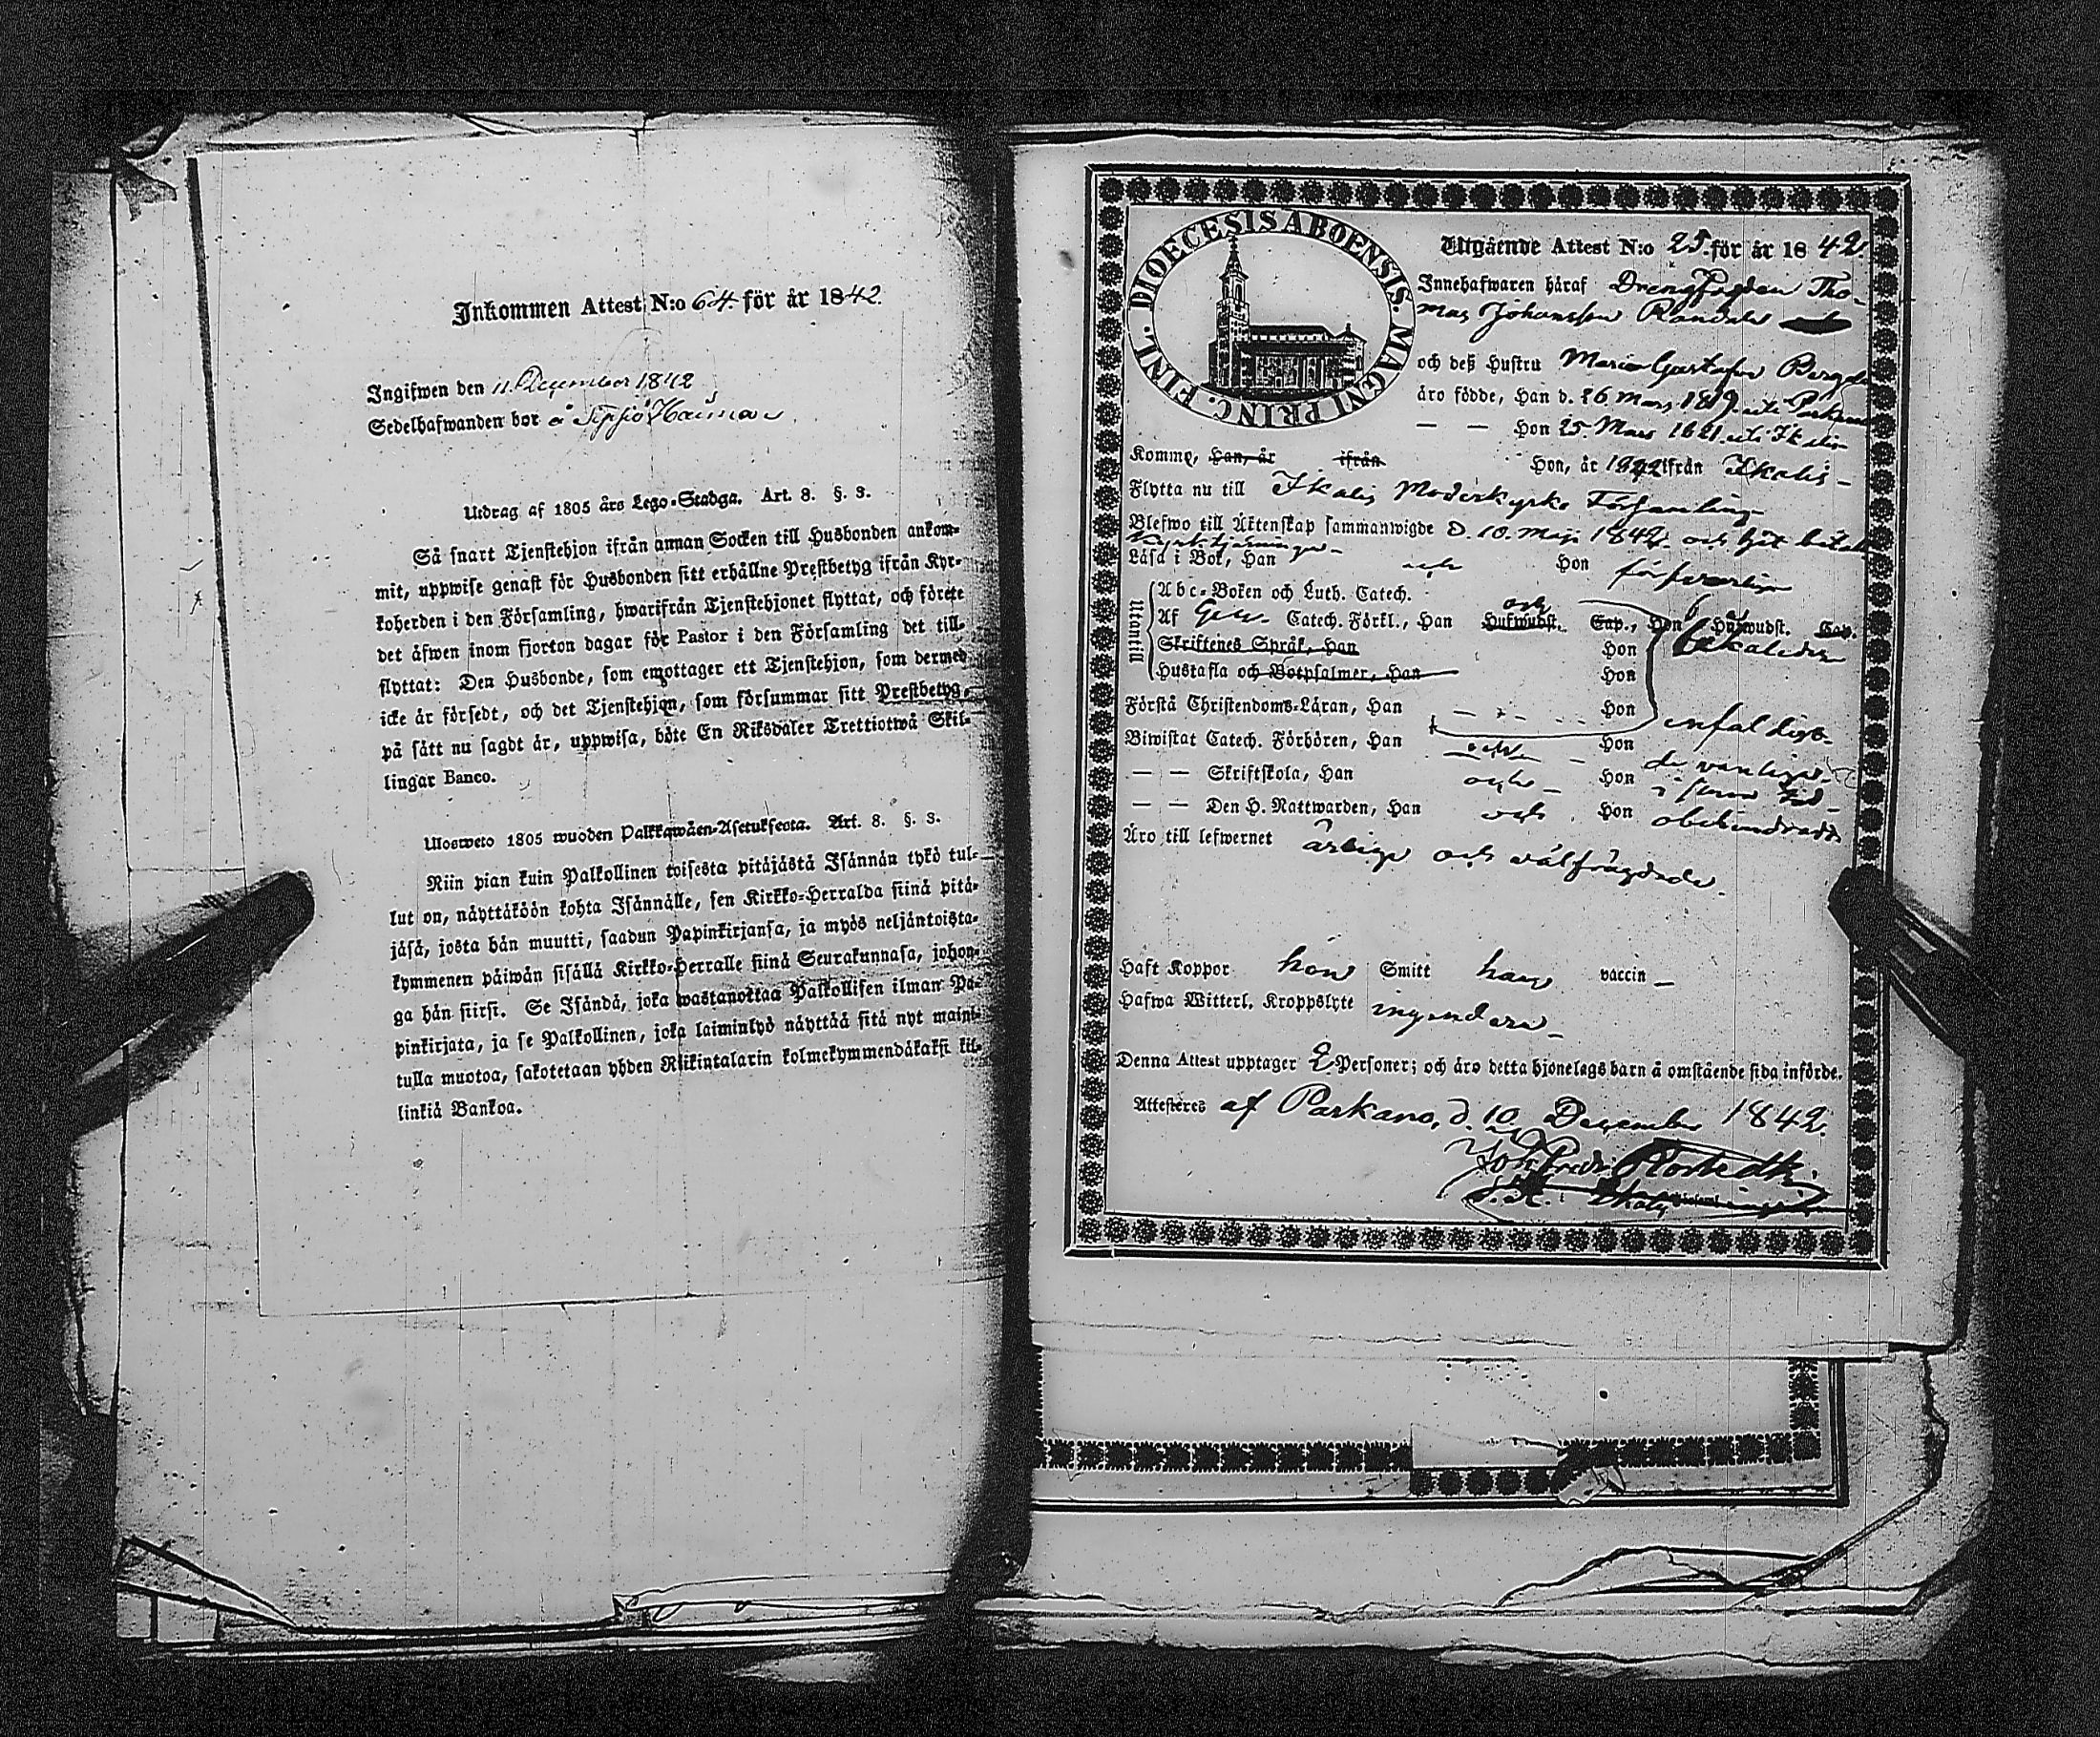 Inkommen Attest N:o 64. för år 1842.
Ingifwen den 11. December 1842
Sedelhafwanden bor å
Utdrag af 1805 års Lego-Stadga. Art. 8. §. 3.
Så snart Tjenstehjon ifrån annan Socken till Husbonden ankom-
mit, uppwise genast för Husbonden sitt erhållne Prestbetyg ifrån Kyr-
koherden i den Församling, hwarifrån Tjenstehjonet flyttat, och förete
det äfwen inom fjorton dagar för Pastor i den Församling det till-
flyttat: Den Husbonde, som emottager ett Tjenstehjon, som dermed
icke är försedt, och det Tjenstehjon, som försummar sitt Prestbetyg,
på sätt nu sagdt är, uppwisa, böte En Riksdaler Trettiotwå Skil-
lingar Banco.
Ulosweto 1805 wuoden Palkkawäen-Asetuksesta. Art. 8. §. 3.
Niin pian kuin Palkollinen toisesta pitäjästä Isännän tykö tul-
lut on, näyttäköön kohta Isännälle, sen Kirkko-Herralda siinä pitä-
jäsä, josta hän muutti, saadun Papinkirjansa, ja myös neljäntoista-
kymmenen päiwän sisällä Kirkko-Herralle siinä Seurakunnasa, johon-
ga hän siirsi. Se Isändä, joka wastanottaa Palkollisen ilman Pa-
pinkirjata, ja se Palkollinen, joka laiminlyö näyttää sitä nyt maini-
tulla muotoa, sakotetaan yhden Riikintalarin kolmekymmendäkaksi kil-
linkiä Bankoa.
DIOECESIS ABOENSIS. MAGNI PRINC. FINL.
Utgående Attest N:o 25. för år 1842.
Innehafwaren häraf Drengfogden Tho-
mas Johansson
och deß Hustru Maria Gustafsd.
äro födde, Han d. 26 Mars 1819
— — Hon 25. Mars 1821 uti Ikalis
Komme, Han, år ifrån Hon, år 1842 ifrån Ikalis -
Flytta nu till Ikalis Moderkyrko Församling
Blefwo till Äktenskap sammanwigde d. 10. Maji 1842. och
Läsa i Bok, Han och Hon försvarliga
Utantill
Abc-Boken och Luth. Catech.
Af Catech. Förkl., Han och Hufwudst. Cap., Hon Hufwudst. Cap.
Skriftenes Språk, Han Hon
Hustafla och Botpsalmer, Han Hon
Förstå Christendoms-Läran, Han Hon enfaldigt.
Biwistat Catech. Förhören, Han och Hon de vanliga
— — Skriftskola, Han och Hon i sinom tid
— — Den H. Nattwarden, Han och Hon obehindrade
Äro till lefwernet ärliga och välfrägdade.
Haft Koppor hon Smitt han vaccin
Hafwa Witterl. Kroppslyte ingendera
Denna Attest upptager 2 Personer; och äro detta hjonelags barn å omstående sida införde.
Attesteras af Parkano, d. 10 December 1842.